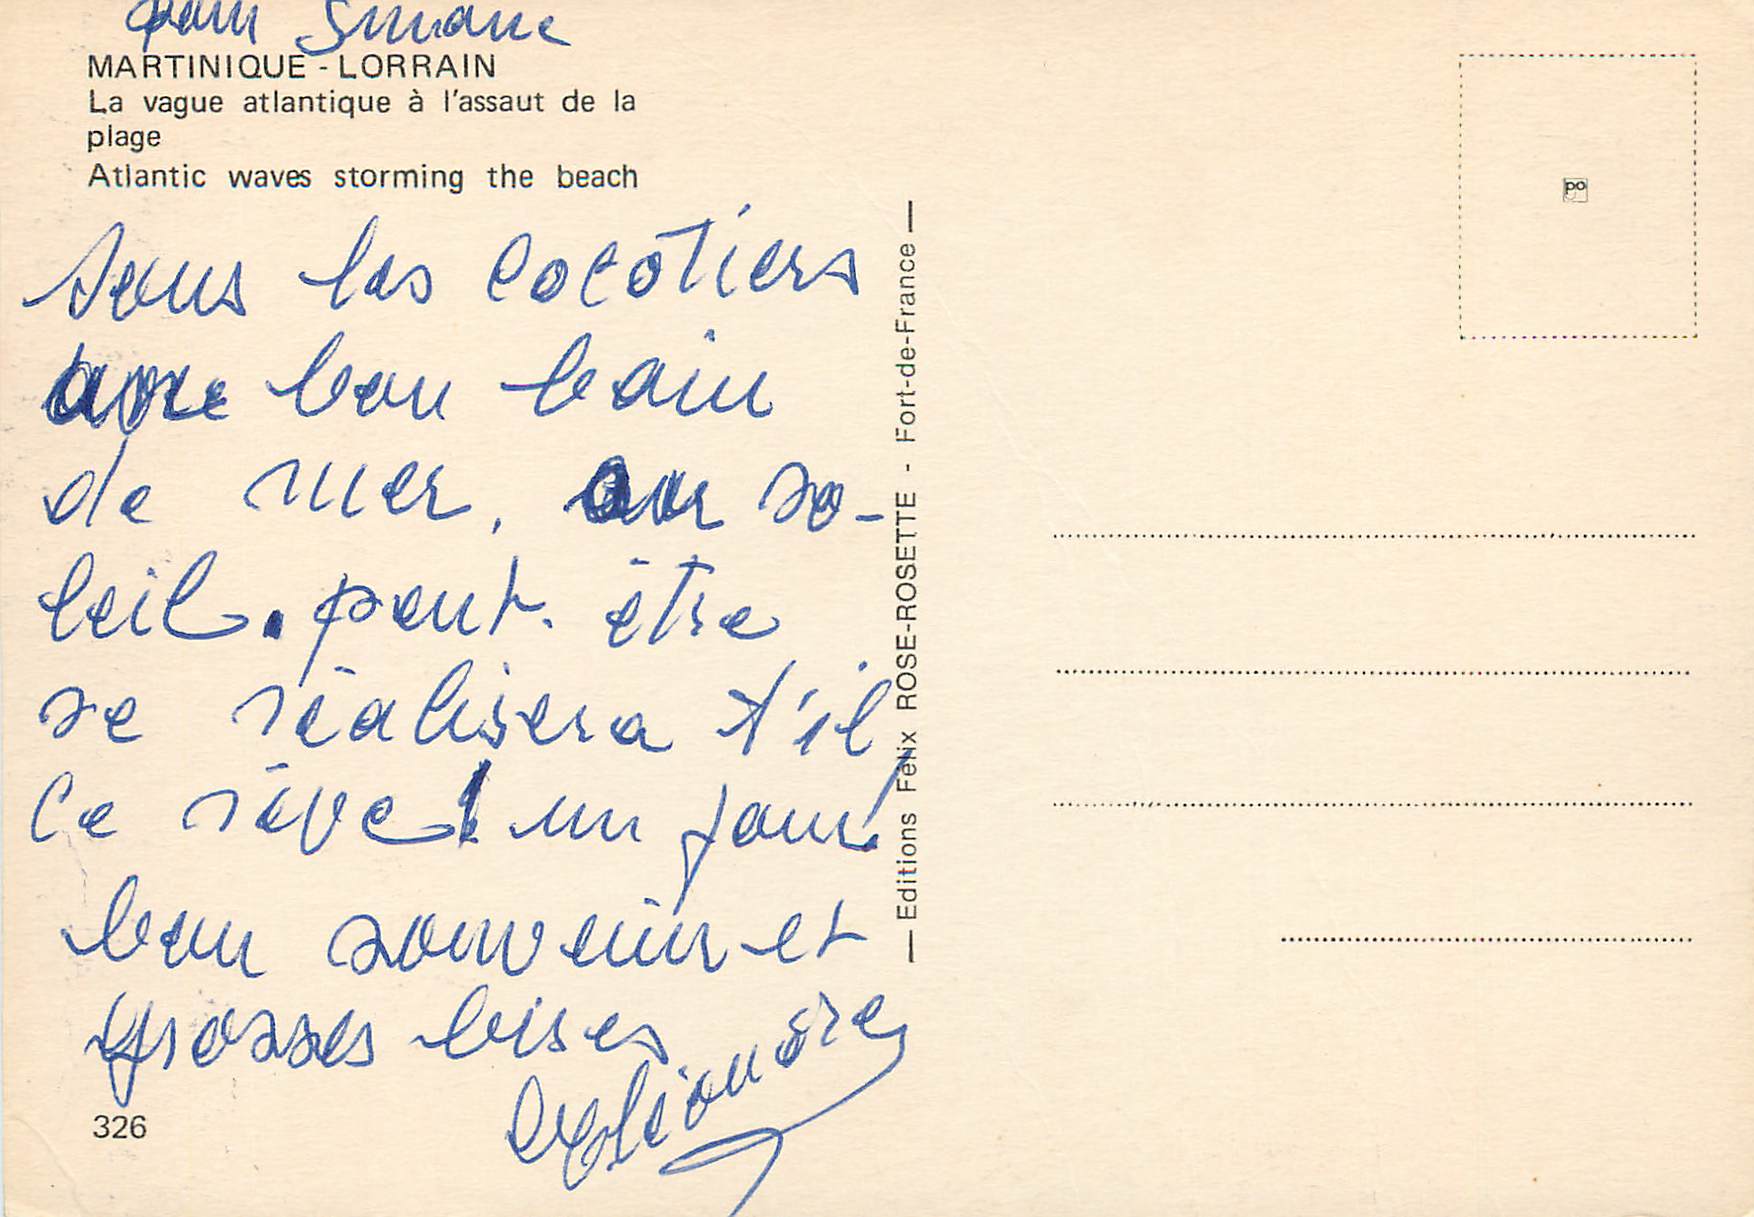 pour Simone
MARTINIQUE - LORRAIN
La vague atlantique à l'assaut de la
plage
Atlantic waves storming the beach
po
sous les cocotiers
bon bain
de mer, au so-
leil. peut-être
se réalisera t'il
ce rêve! un jour!
bon souvenir et
grosses bises
326
— Editions Félix ROSE-ROSETTE - Fort-de-France —